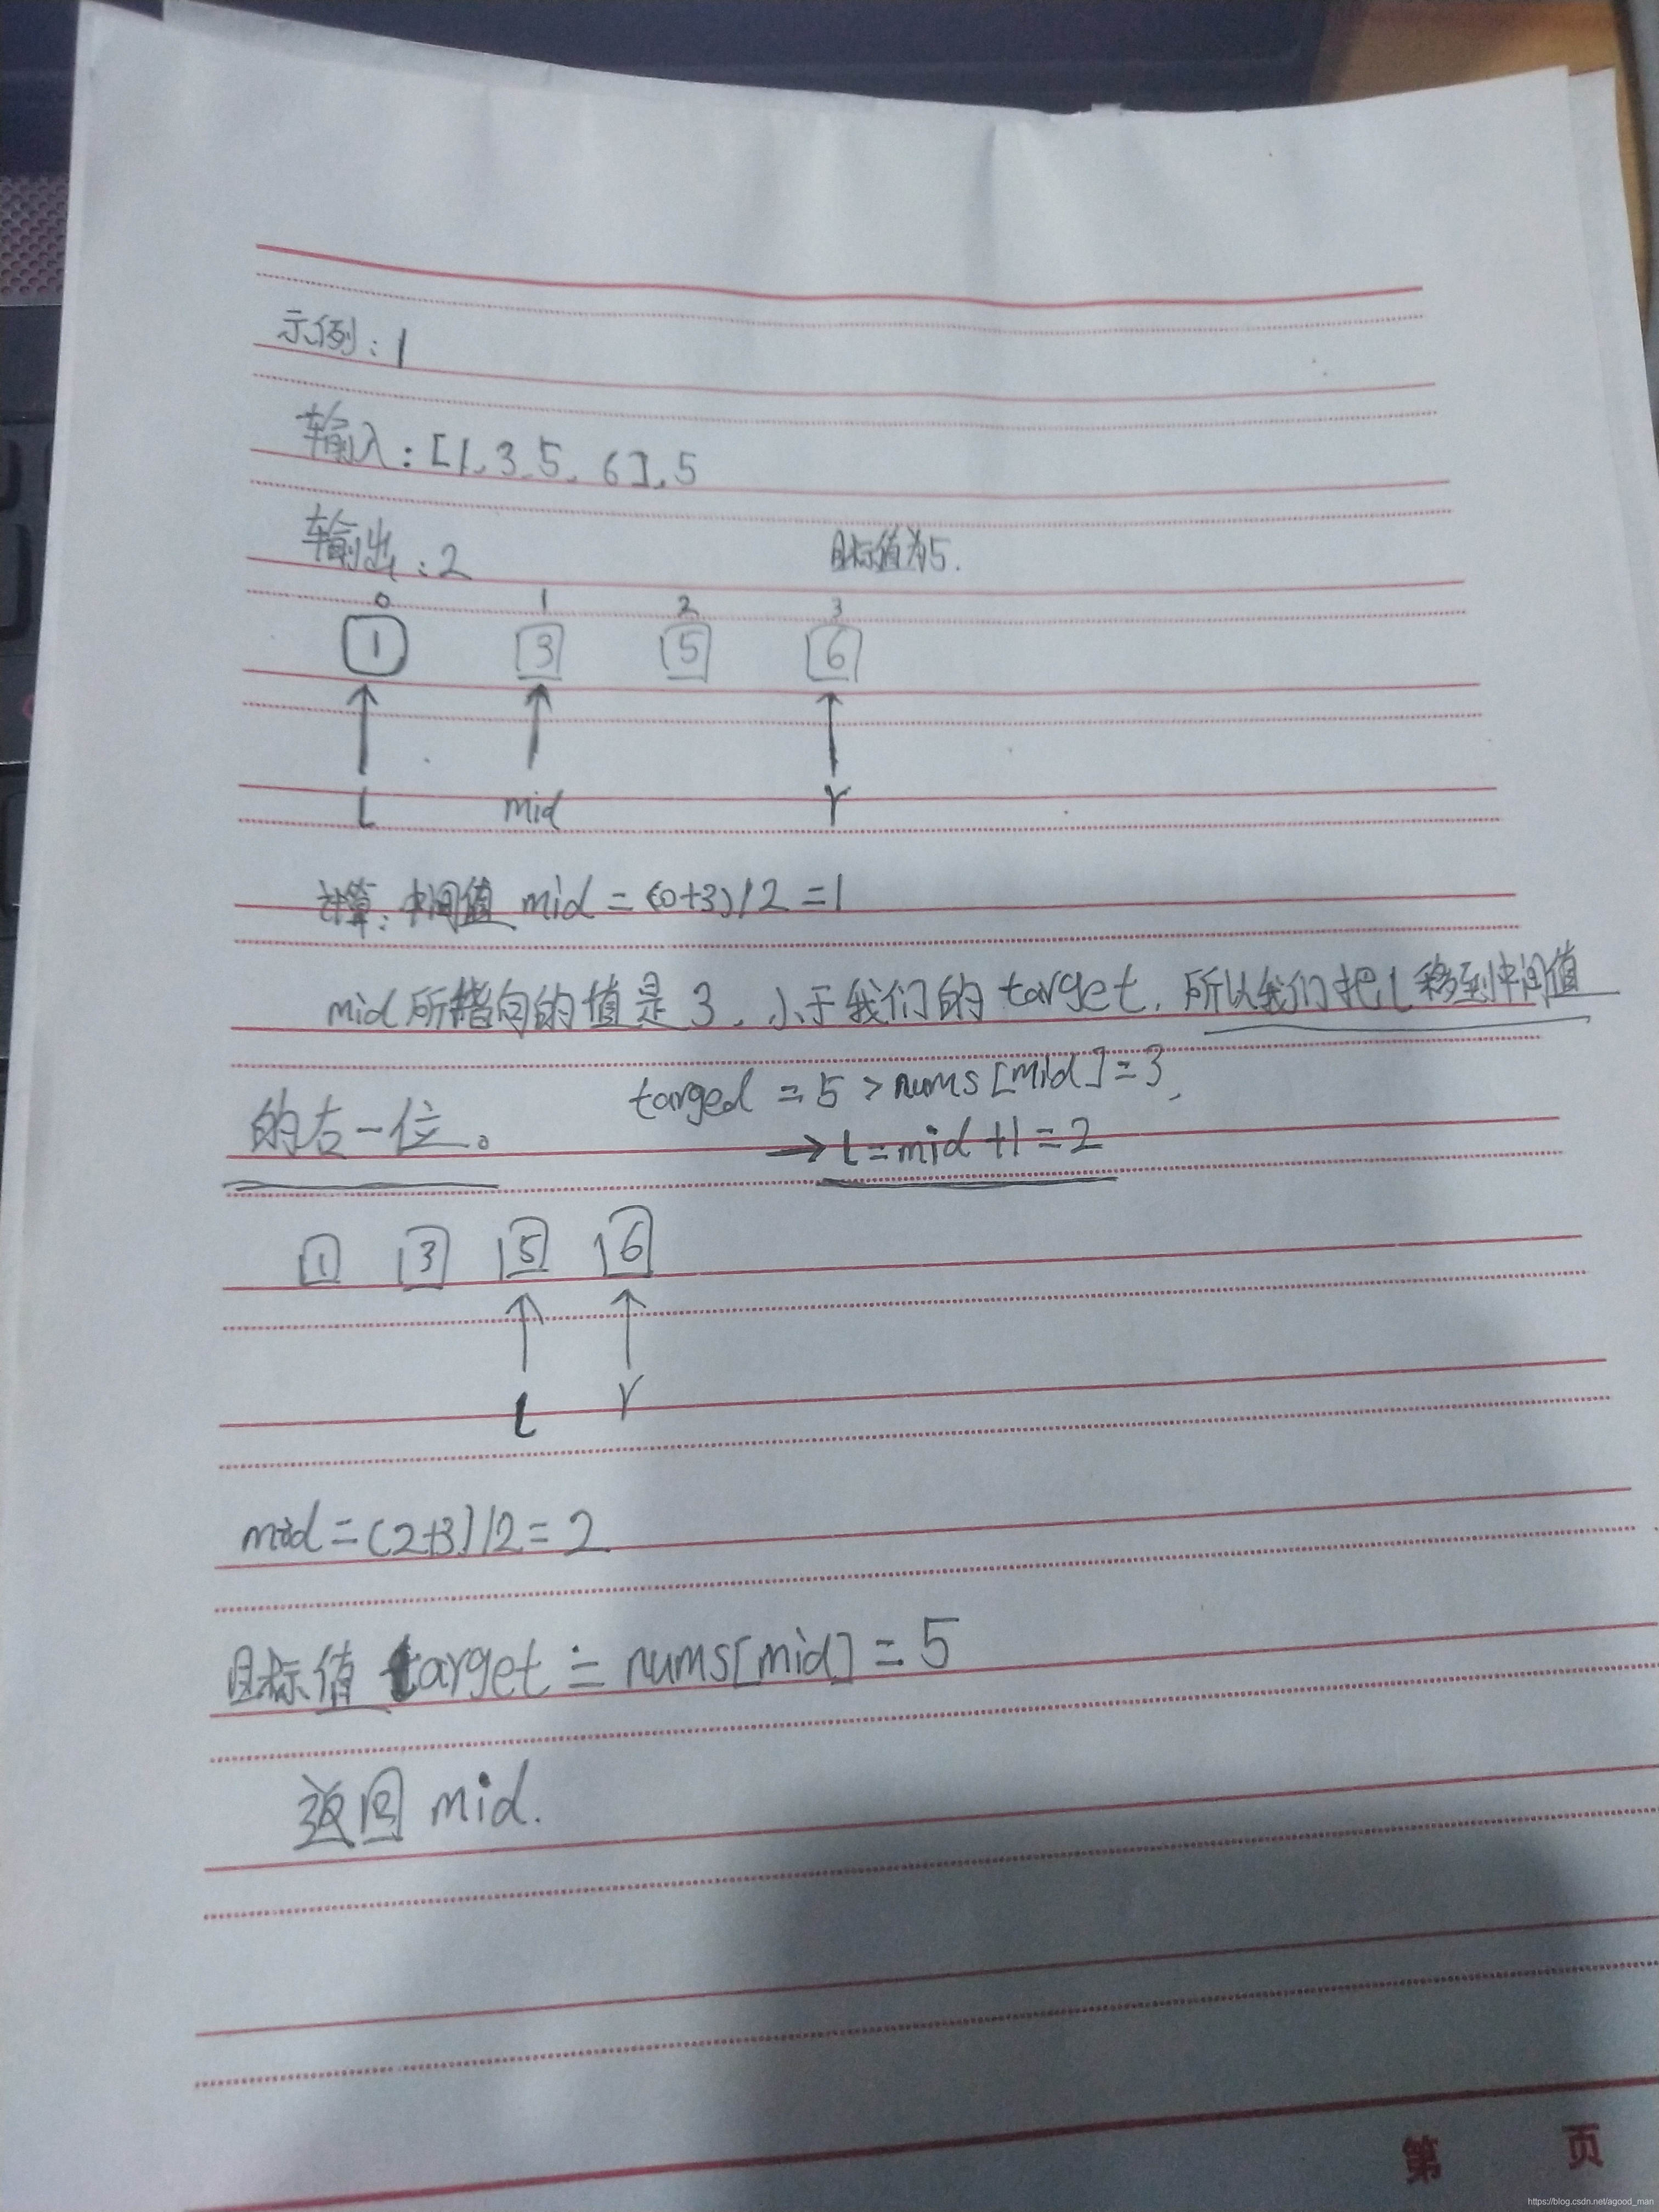 示例：1
输入：[1, 3, 5, 6], 5
输出：2
目标值为5.
0 1 2 3
1 3 5 6
l mid r
计算：中间值 mid = (0+3)/2 = 1
mid所指向的值是3，小于我们的target，所以我们把l移到中间值
的右一位。
targed = 5 > nums[mid] = 3,
→ l = mid + 1 = 2
1 3 5 6
l r
mid = (2+3)/2 = 2
目标值 target = nums[mid] = 5
返回 mid.
第 页
https://blog.csdn.net/agood_man